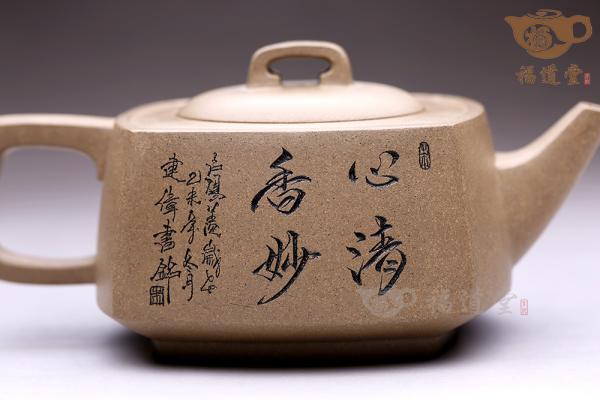 心清
香妙
乙未年冬月
建偉書銘
福
福道堂
福道堂